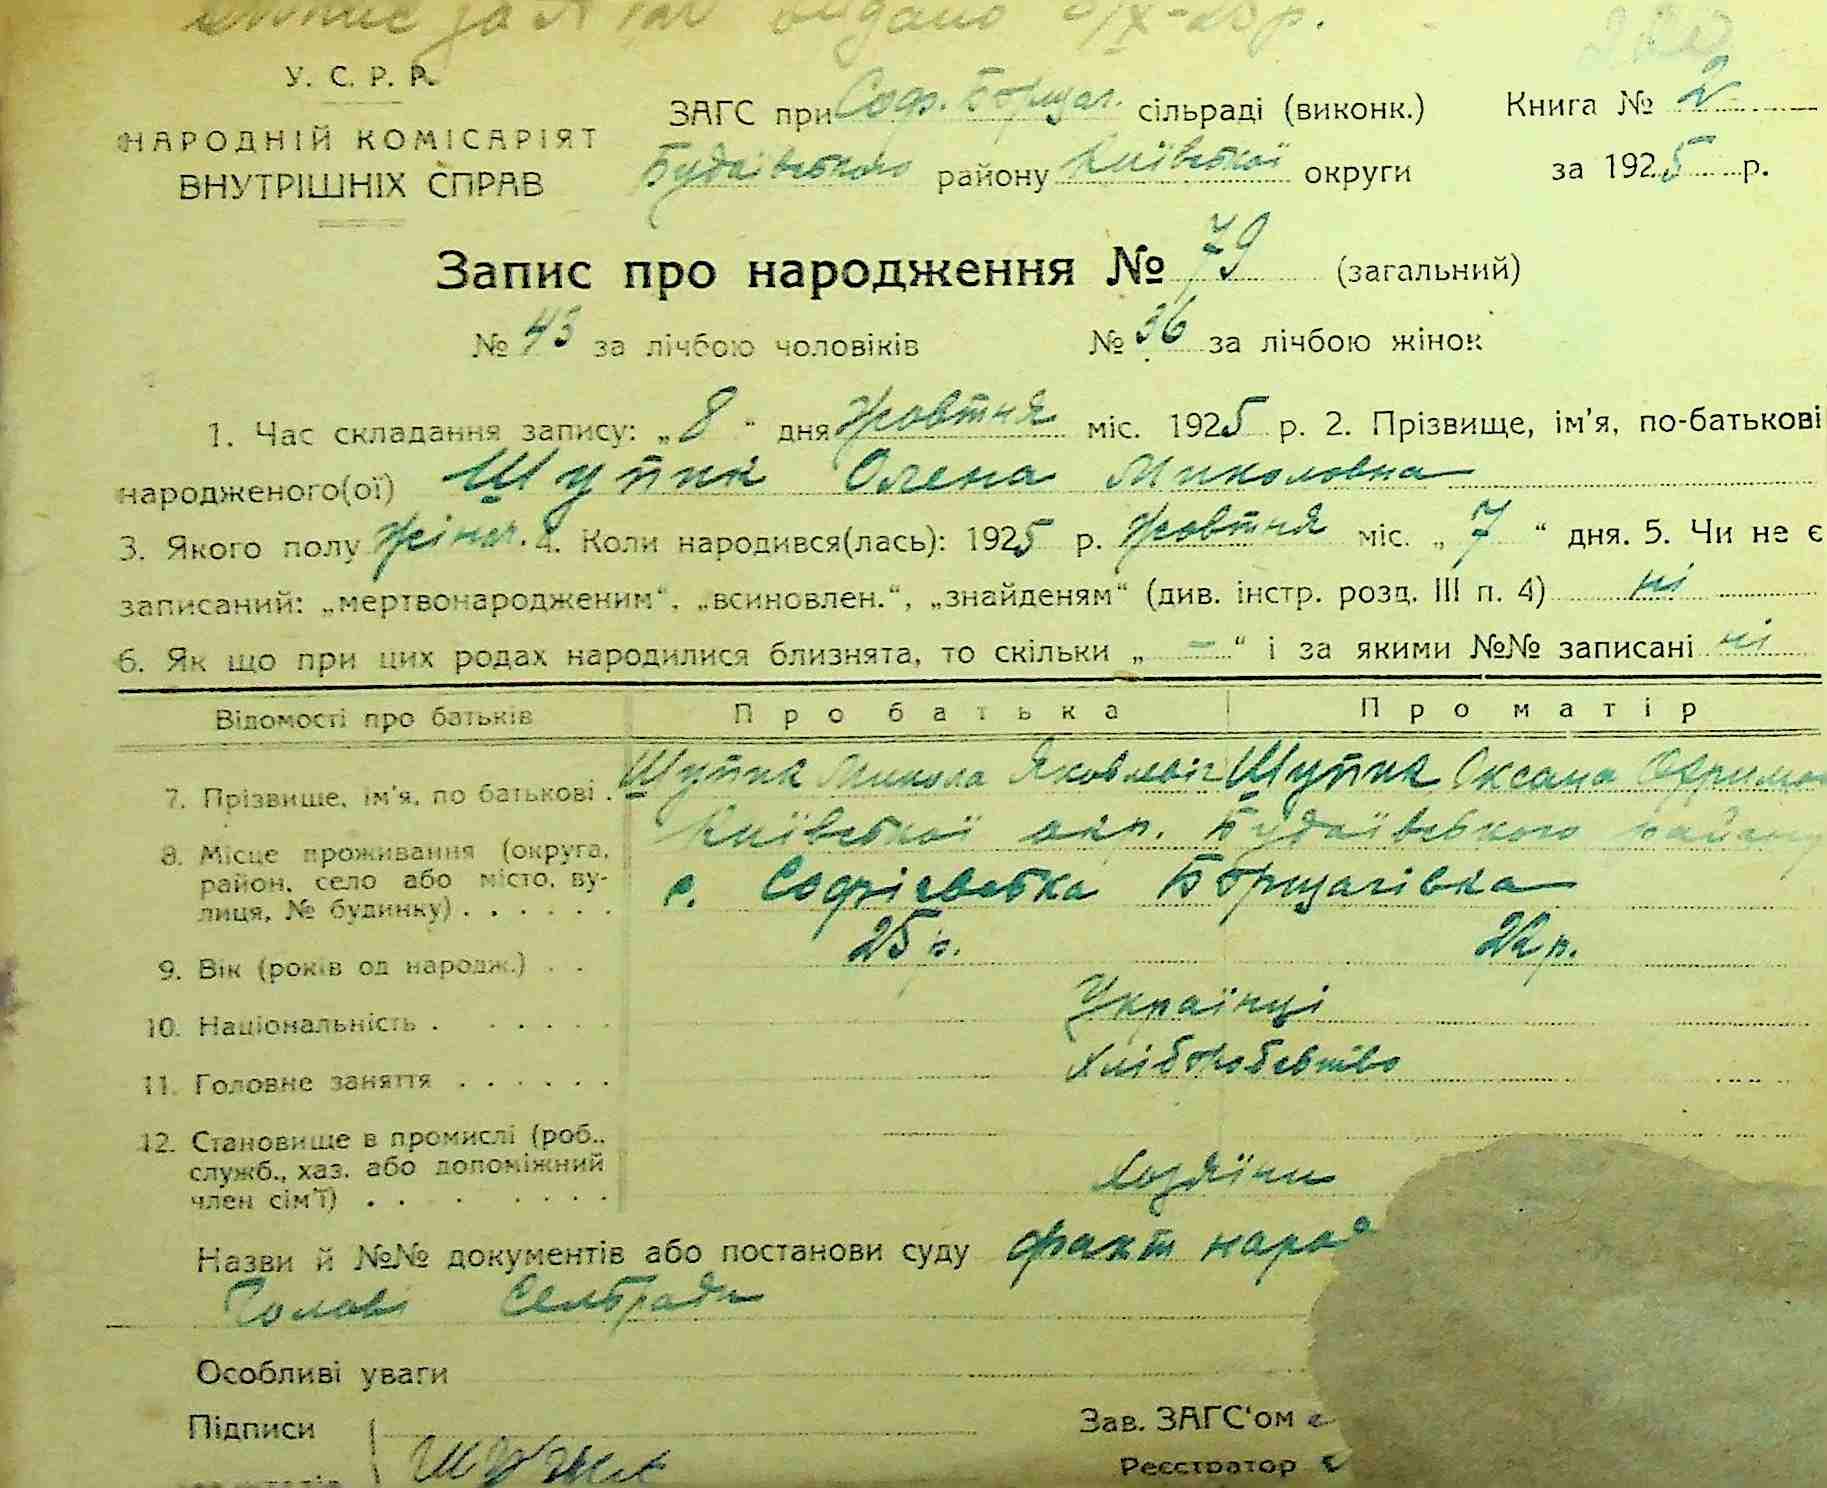 видано
У. С. Р. Р.
НАРОДНІЙ КОМІСАРІЯТ
ВНУТРІШНІХ СПРАВ
ЗАГС при Соф. Борщаг. сільраді (виконк.) Книга № 2
Будаївського району Київської округи за 1925 р.
Запис про народження № 79 (загальний)
№ 43 за лічбою чоловіків № 36 за лічбою жінок
1. Час складання запису: „8“ дня Жовтня міс. 1925 р. 2. Прізвище, ім'я, по-батькові
народженого(ої) Щупик Олена Миколовна
3. Якого полу жіноч. 4. Коли народився(лась): 1925 р. Жовтня міс. „7“ дня. 5. Чи не є
записаний: „мертвонародженим“, „всиновлен.“, „знайденям“ (див. інстр. розд. III п. 4) ні
6. Як що при цих родах народилися близнята, то скільки „–“ і за якими №№ записані ні
Відомості про батьків Про батька Про матір
7. Прізвище, ім'я, по батькові . Щупик Микола Яковлевіч Щупик Оксана
8. Місце проживання (округа, район, село або місто, ву-лиця, № будинку) . . . . . . Київської окр. Будаївського району
с. Софієвська Борщагівка
9. Вік (років од народж.) . . 25 р. 22 р.
10. Національність . . . . . . Українці
11. Головне заняття . . . . . . Хліборобство
12. Становище в промислі (роб.,
служб., хаз. або допоміжний
член сім'ї) . . . . . . . . Хозяїни
Назви й №№ документів або постанови суду факт народ
Голові Сельради
Особливі уваги
Підписи Зав. ЗАГС'ом
Щупик Реєстратор